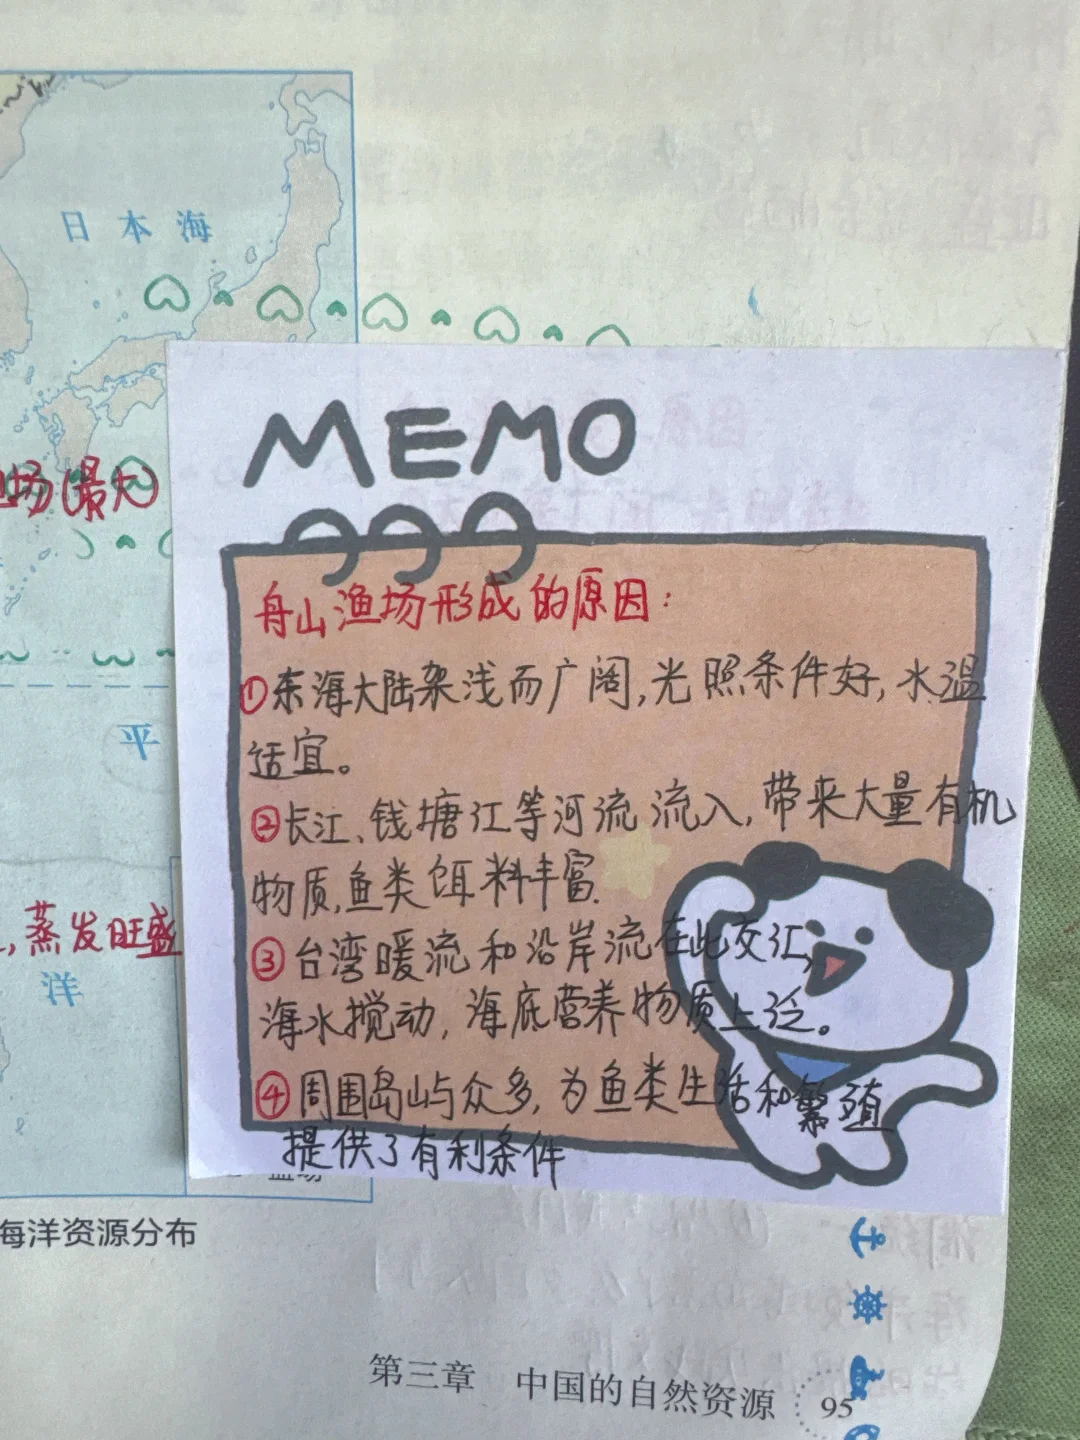 日本海
场(最大)
MEMO
舟山渔场形成的原因:
①东海大陆架浅而广阔,光照条件好,水温
适宜。
②长江、钱塘江等河流流入,带来大量有机
物质,鱼类饵料丰富.
③台湾暖流和沿岸流在此交汇,
海水搅动,海底营养物质上泛。
④周围岛屿众多,为鱼类生活和繁殖
提供了有利条件
平
,蒸发旺盛
洋
海洋资源分布
第三章 中国的自然资源
95